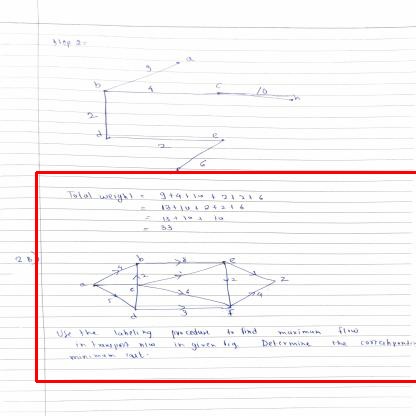 Step 2:
9 a
b 4 c 10 h
2
d 2 e
6
Total weight = 9+4+10+2+2+6
= 13+10+2+2+6
= 13+10+10
= 33
2 B)
b 8 e
4 2 2 z
a c 6 4
5 d 3 f
Use the labeling procedure to find maximum flow
in transport n/w in given fig. Determine the corresponding
minimum cut.